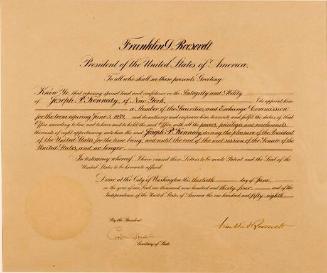 Franklin D. Roosevelt
President of the United States of America,
To all who shall see these presents Greeting:
Know Ye, that reposing special trust and confidence in the Integrity and Ability
of Joseph P. Kennedy, of New York, I do appoint him
a Member of the Securities and Exchange Commission
for the term expiring June 5, and do authorize and empower him to execute and fulfil the duties of that
Office according to law, and to have and to hold the said Office, with all the powers, privileges and emoluments
thereunto of right appertaining unto him the said Joseph P. Kennedy, during the pleasure of the President
of the United States for the time being, and until the end of the next session of the Senate of the
United States, and no longer.
In testimony whereof, I have caused these Letters to be made Patent and the Seal of the
United States to be hereunto affixed.
Done at the City of Washington this thirtieth day of June,
in the year of our Lord one thousand nine hundred and thirty-four, and of the
Independence of the United States the one hundred and fifty-eighth.
Franklin D. Roosevelt
By the President:
Secretary of State.